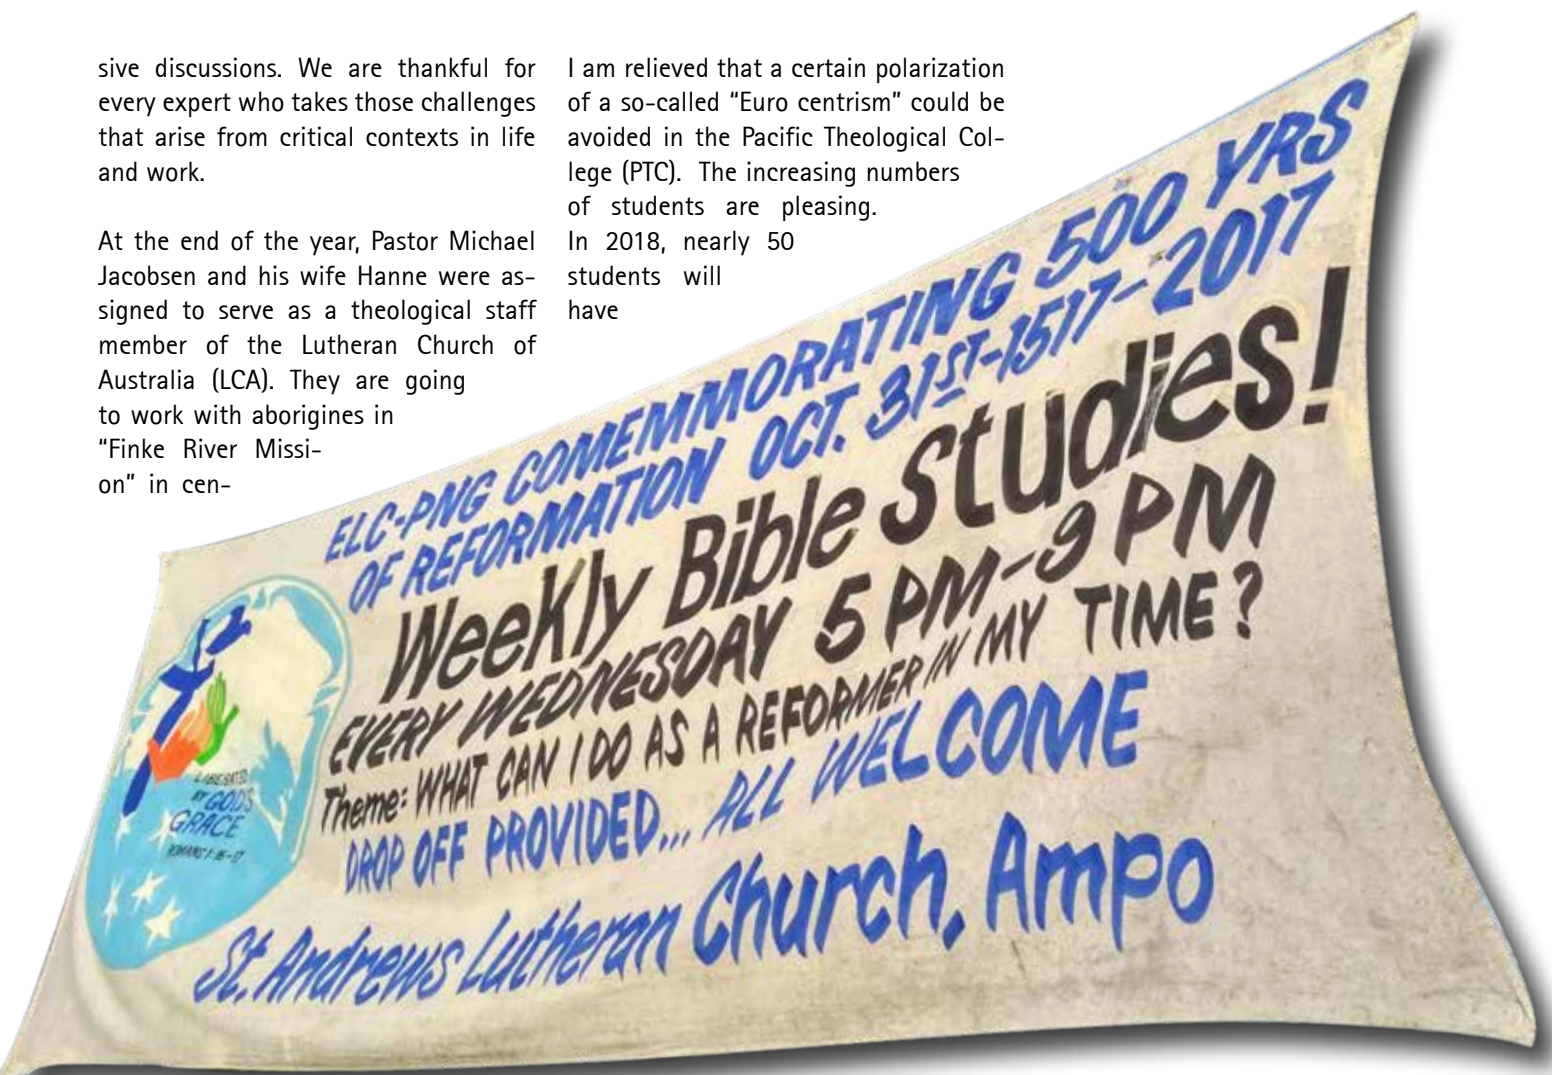 sive discussions. We are thankful for
every expert who takes those challenges
that arise from critical contexts in life
and work.
At the end of the year, Pastor Michael
Jacobsen and his wife Hanne were as-
signed to serve as a theological staff
member of the Lutheran Church of
Australia (LCA). They are going
to work with aborigines in
"Finke River Missi-
on" in cen-
I am relieved that a certain polarization
of a so-called "Euro centrism" could be
avoided in the Pacific Theological Col-
lege (PTC). The increasing numbers
of students are pleasing.
In 2018, nearly 50
students will
have
ELC-PNG COMEMMORATING 500 YRS
OF REFORMATION OCT. 31ST-1517-2017
Weekly Bible Studies!
EVERY WEDNESDAY 5 PM-9 PM
Theme: WHAT CAN I DO AS A REFORMER IN MY TIME?
DROP OFF PROVIDED... ALL WELCOME
St. Andrews Lutheran Church, Ampo
LIBERATED
BY GOD'S
GRACE
ROMANS 1:16-17